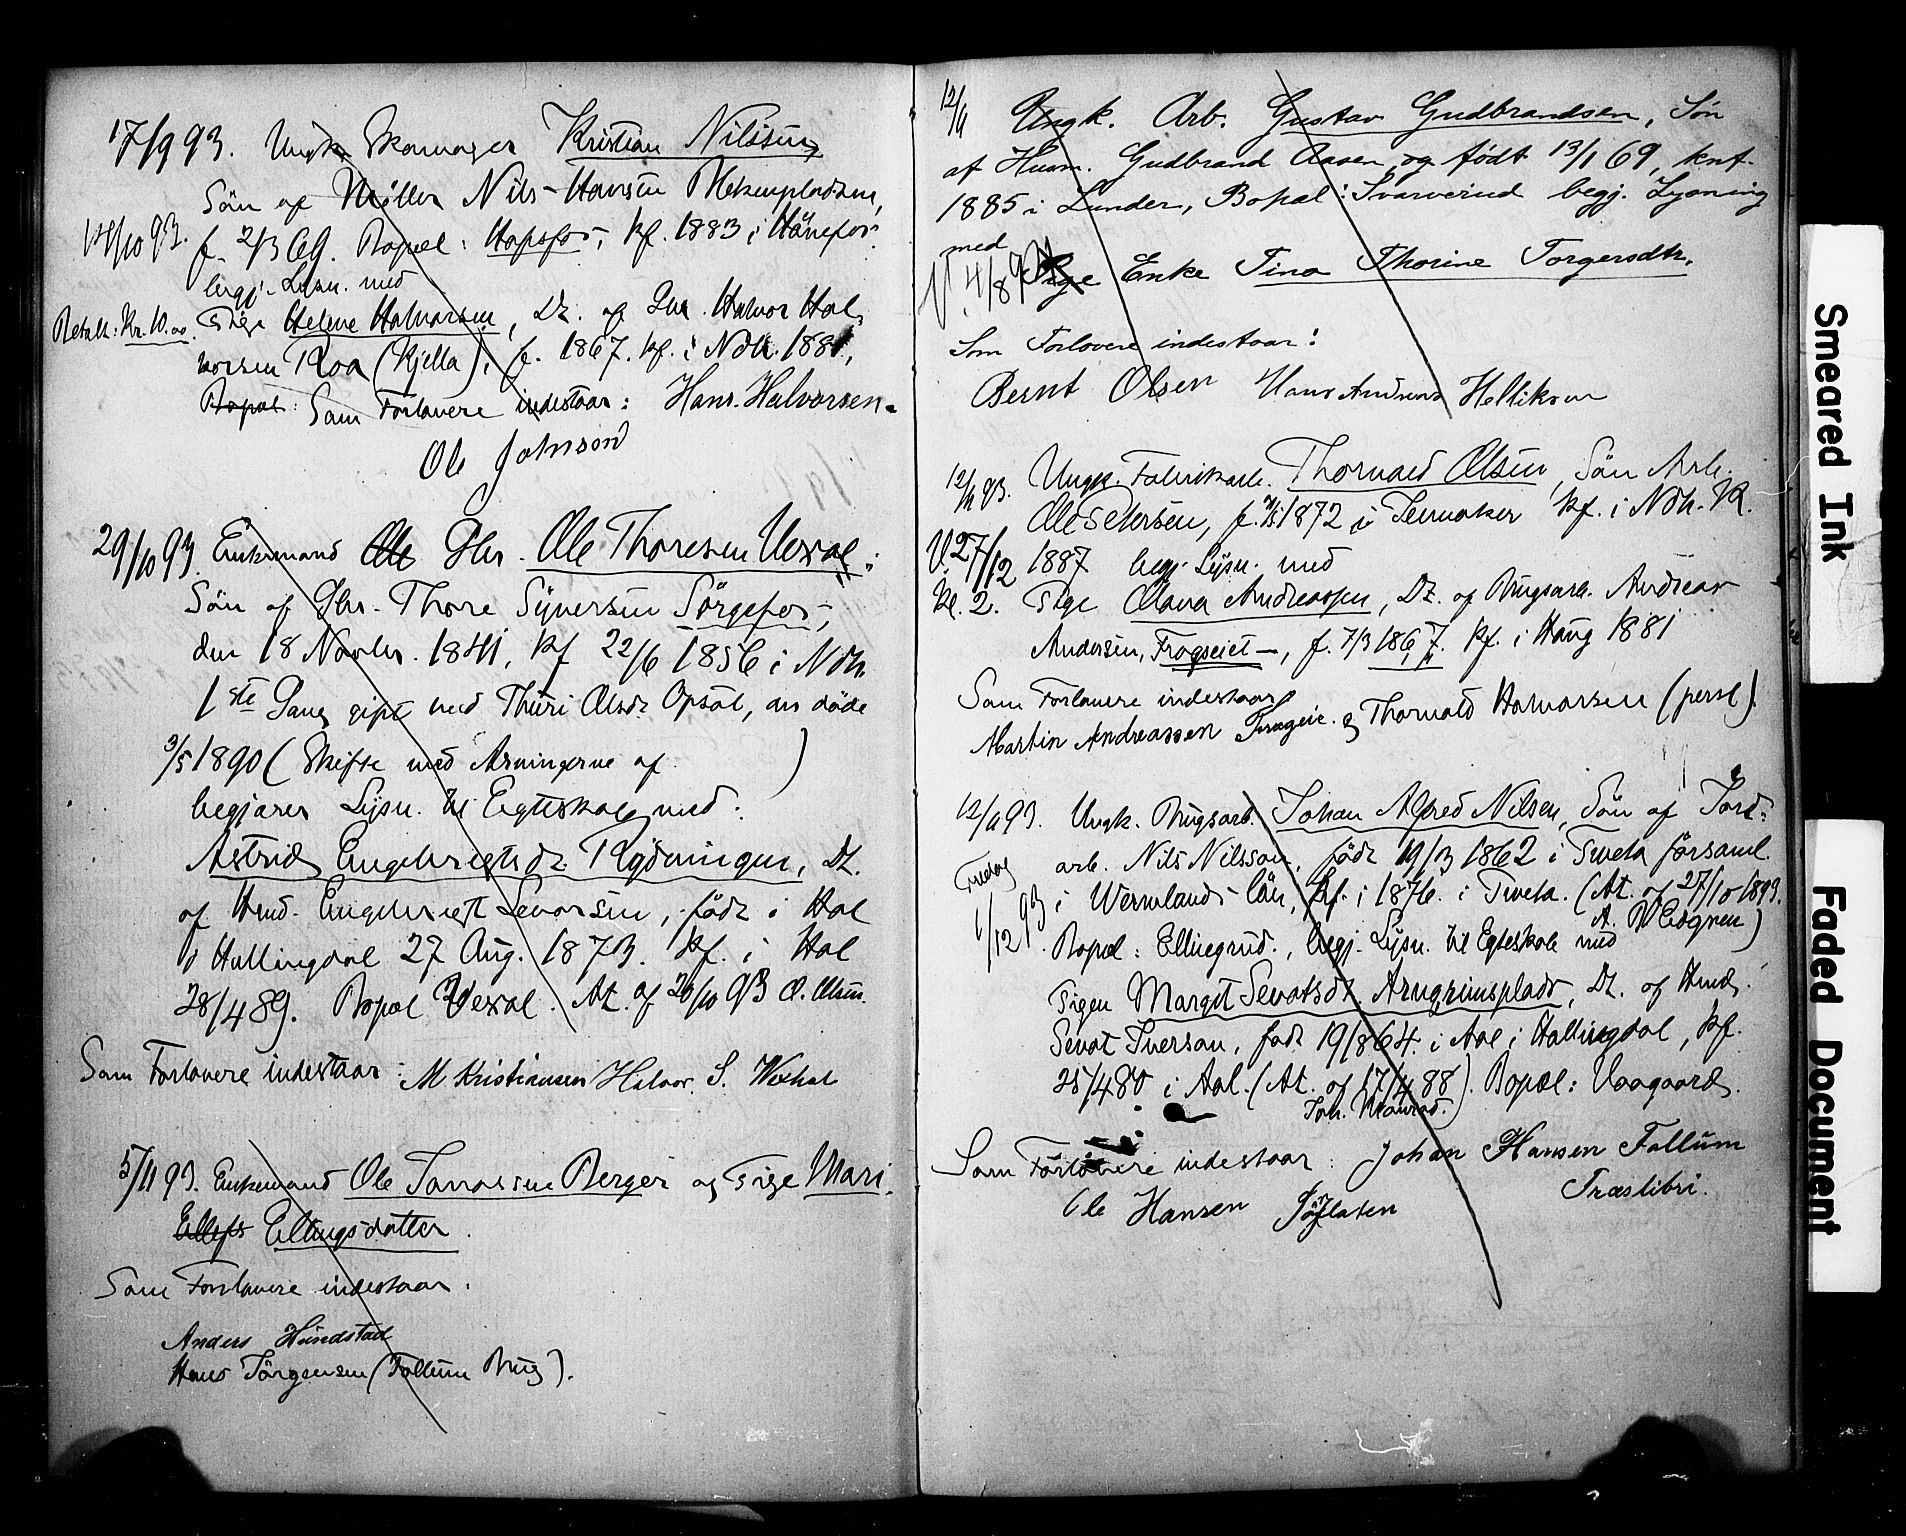 17/9 93. Ungk. Skomager Kristian Nilssen,
Sön af Møller Nils Hansen
14/10 93. f. 2/3 69. Bopæl: Hofsfos, kf. 1883 i Hönefos
begj. Lysn. med
Betalt: Kr. 10.00. Pige Helene Halvorsen, Dt. af Halvor Hal-
vorsen Roa (Kjella), f. 1867. kf. i Ndh. 1881,
Bopæl: Som Forlovere indestaar: Hans Halvorsen
Ole Johnson
29/10 93. Enkemand Ole Gbr. Ole Thoresen Vexal:
Sön af Gbr. Thore Syversen Sörgefos,
den 18 Novbr. 1841, kf 22/6 1856 i Ndh.
1ste Gang gift med Thuri Olsdt. Opsal, der döde
3/5 1890 (Skifte med Arvingerne af )
begjærer Lysn. til Egteskab med:
Astrid Engebrigtsdt. Rydningen, Dt.
af Hmd. Engebrigt Sevarsen, födt i Hol
i Hallingdal 27 Aug. 1873. kf. i Hol
28/4 89. Bopæl Vexal. At. af 20/10 93 O. Olsen.
Som Forlovere indestaar: M Kristiansen Halvor. S. Wexhal
5/11 93. Enkemand Ole Berger og Pige Mari
Ellefs Ellingsdatter.
Som Forlovere indestaar.
Anders Hundstad
Hans Jörgensen (Follum Brug).
12/11 Ungk. Arb. Gustav Gudbrandsen, Søn
af Husm. Gudbrand Aasen og født 13/1 69, knf.
1885 i Lunder, Bopæl: Svarverud begj. Lysning
med
V. 4/8 9 Pige Enke Tina Thorine Torgersdtr.
Som Forlovere indestaar:
Bernt Olsen Hans Andreas Helliksen
12/11 93. Ungk. Fabrikarb. Thorvald Olsen, Sön Arb.
Ole Pedersen, f. 1872 i Jevnaker kf. i Ndh. K.
V. 27/12 1887 begj. Lysn. med
Kl. 2. Pige Olava Andreassen, Dt. af Brugsarb. Andreas
Andersen, Frogseiet, f. 7/3 1867. kf. i Haug 1881
Som Forlovere indestaar
Martin Andreassen og Thorvald Halvorsen (persl).
12/11 93. Ungk. Brugsarb. Johan Alfred Nilsen, Sön af Jord-
arb. Nils Nilsson, födt 19/3 1862 i Tveta församl.
Fredag i Wermlands län, kf. i 1876. i Tveta. (At. af 27/10 1893.
A. Wedgren)
1/12 93. Bopæl: Ellingrud., begj. Lysn. til Egteskab med
Pigen Margit Sevatsdt. Arngrimsplads, Dt. af Hmd.
Sevat Iverson, födt 19/8 64. i Aal i Hallingdal, kf.
25/4 80 i Aal. (At. af 17/4 88). Bopæl: Vaagaard.
Som Forlovere indestaar: Johan Hansen Follum
Træslibri.
Ole Hansen
Smeared Ink
Faded Document